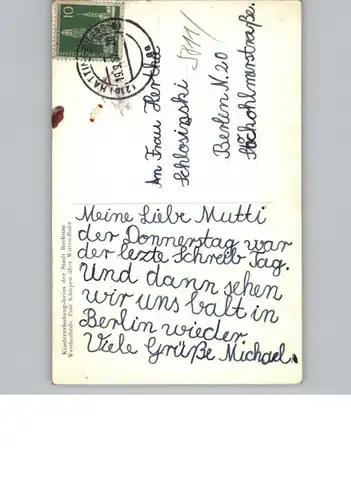 Meine Liebe Mutti
der Donnerstag war
der lezte Schreib Tag.
Und dann sehen
wir uns balt in
Berlin wieder
Viele Grüße Michael.
An Frau Hertha
Schlosinski
Berlin N. 20
Kindererholungsheim der Stadt Bochum
10